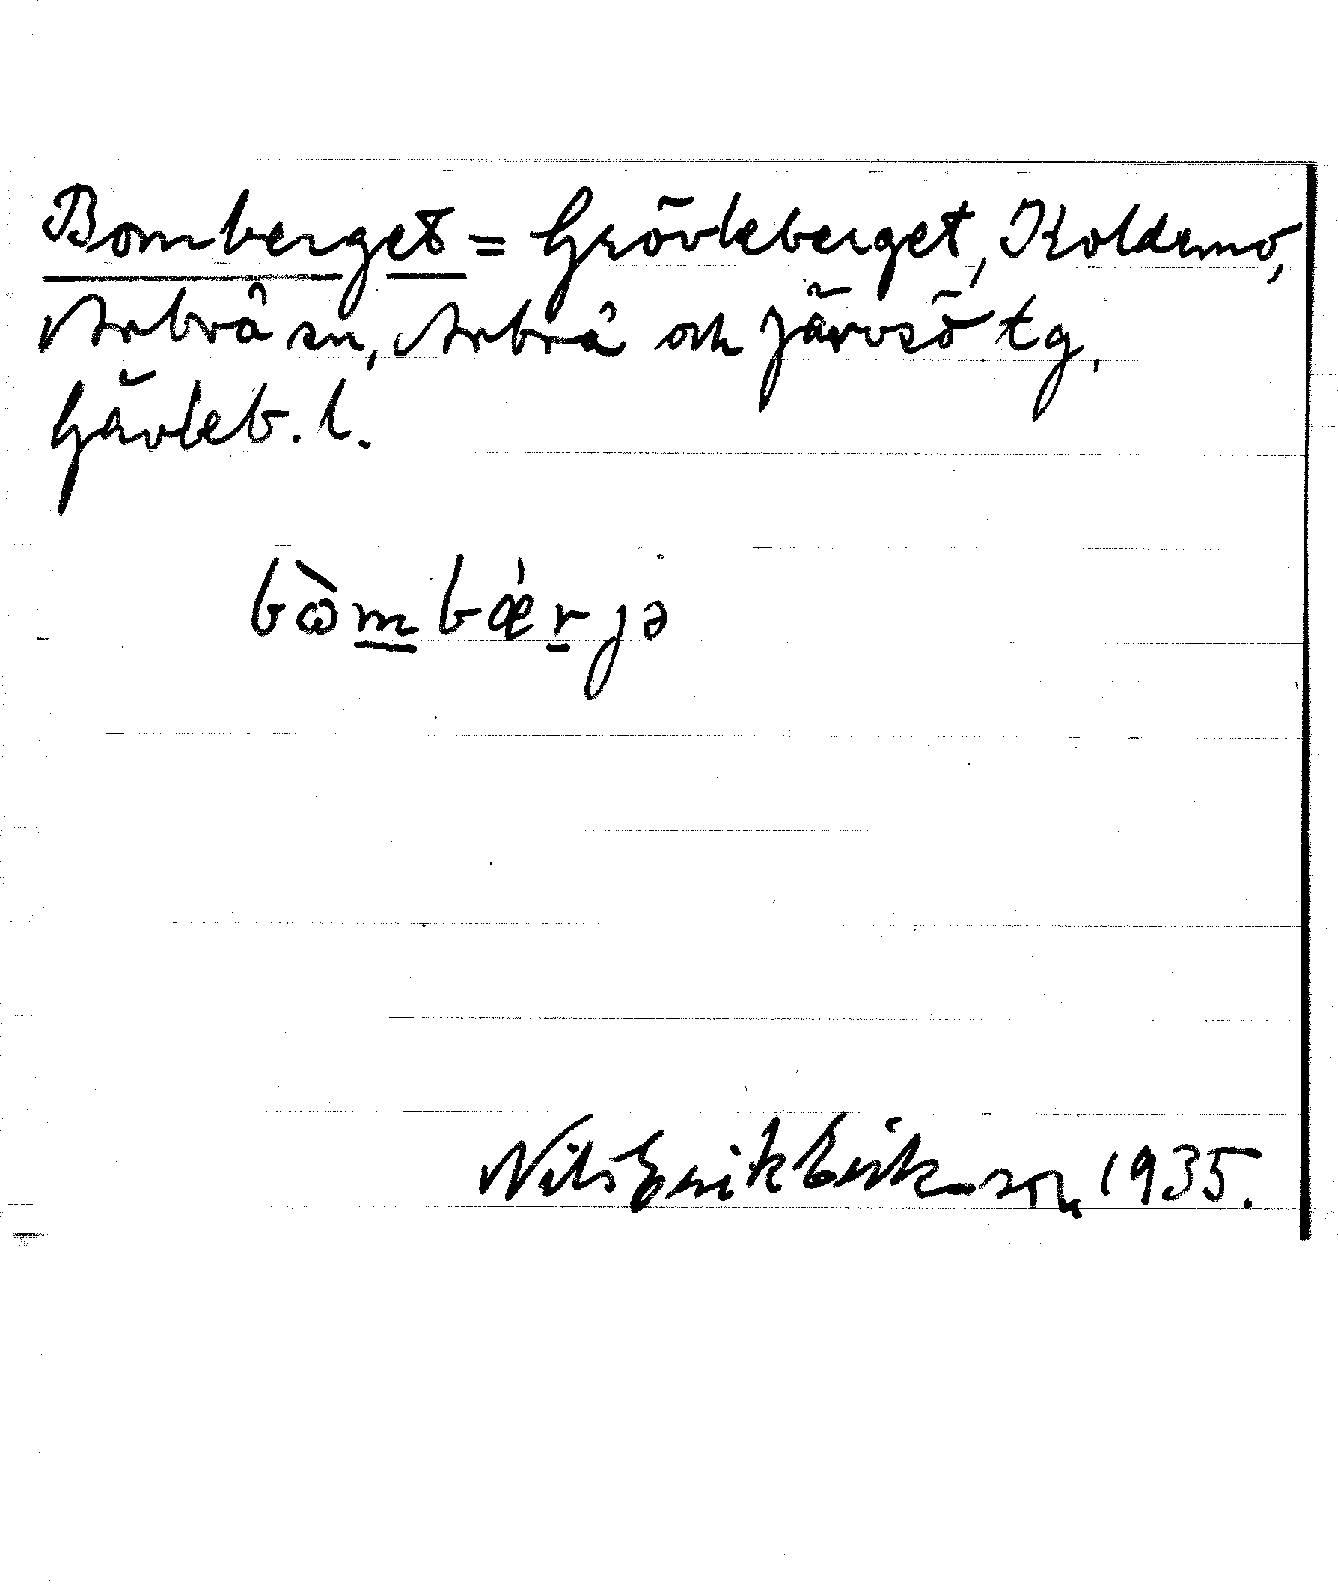 Bomberget = Grövleberget, Koldemo,
Arbrå sn, Arbrå och Järvsö tg,
Gävleb. l.
bɷ̀mbǽrjə
Nils Erik Eriksson 1935.